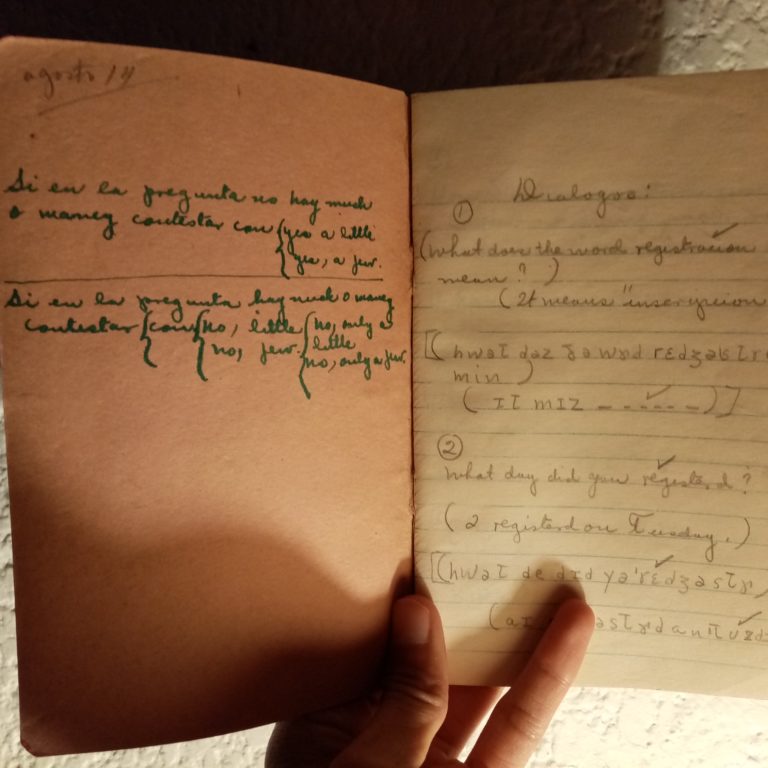 agosto 14
Si en la pregunta no hay much
o maney contestar con { yes a little
yes, a few.
Si en la pregunta hay much o maney
contestar { con { no, little { no, only a
little
no, few. no, only a few.
Dialogoo:
①
(What does the word registracion
mean?)
(It means "inscripcion
[(hwət dəz ðə wɝd rɛdʒəstr
min)
(ɪt mɪz ------)]
②
What day did you registerd?
(I registerd on Tuesday.)
[(hwət de dɪd yə'rɛdʒəstɚ
(aɪ əstɚd an